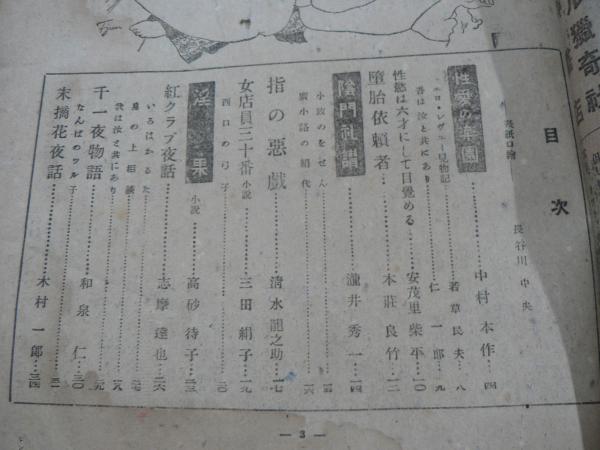 獵奇社
目次
表紙口繪
長谷川中央
性愛の華園 中村本作…四
エロ・レヴュー見物記 若草民夫…八
吾は汝と共にあり 仁一郎…九
性慾は六才にして目覺める 安茂里柴平…一〇
墮胎依頼者 本莊良竹…一二
陰門礼讃 瀧井秀一…一四
小坂のをせん
廣小路の絹代…一六
指の惡戲 清水龍之助…一七
女店員三十番 小説 三田絹子…一九
西口の弓子…二〇
淫果 小説 高砂待子…二三
紅クラブ夜話 志摩達也…二六
いろはかるた…二七
身の上相談…二八
我は汝と共にあり…二九
千一夜物語 和泉仁…三〇
なんばのツル子…三一
末摘花夜話 木村一郎…三四
— 3 —